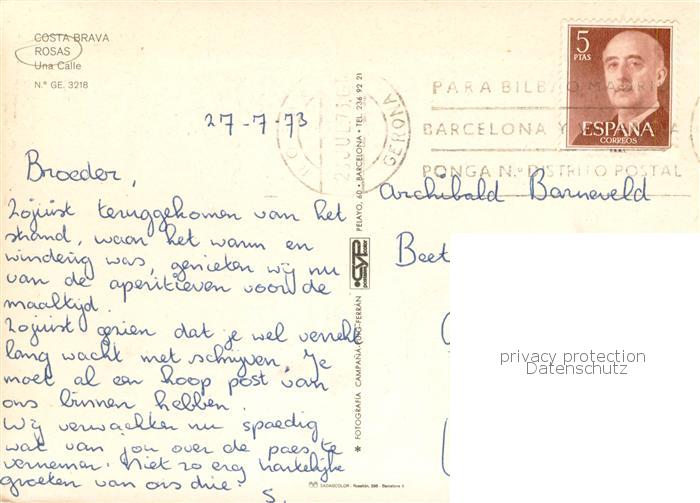 COSTA BRAVA
ROSAS
Una Calle
N.º GE. 3218
27-7-73
Broeder,
Zojuist teruggekomen van het
strand, waar het warm en
winderig was, genieten wij nu
van de aperitieven voor de
maaltijd.
Zojuist gezien dat je wel verrekt
lang wacht met schrijven. Je
moet al een hoop post van
ons binnen hebben.
Wij verwachten nu spoedig
wat van jou over de paes te
vernemen. Niet zo erg hartelijke
groeten van ons drie.
S.
PELAYO, 60 • BARCELONA • TEL. 236 92 21
CYP
* FOTOGRAFIA CAMPAÑA-PUIG-FERRÁN
SADAGCOLOR - Rosellón, 298 - Barcelona
GERONA
PARA BILBAO, MADRID
BARCELONA Y
PONGA N.º DISTRITO POSTAL
5
PTAS
ESPAÑA
CORREOS
Archibald Barneveld
Beet
privacy protection
Datenschutz